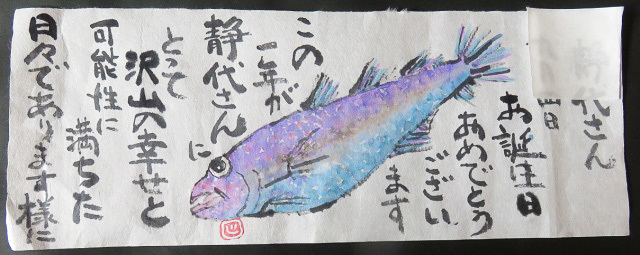 静代さん
お誕生日
おめでとう
ござい
ます
この
一年が
静代さんに
とって
沢山の幸せと
可能性に
満ちた
日々であります様に